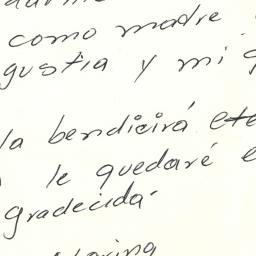 como madre
gustia y mi
la bendicirá ete
le quedaré e
gradecida.